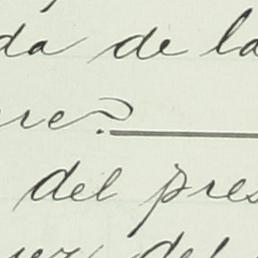 da de la
re?
del pres
del